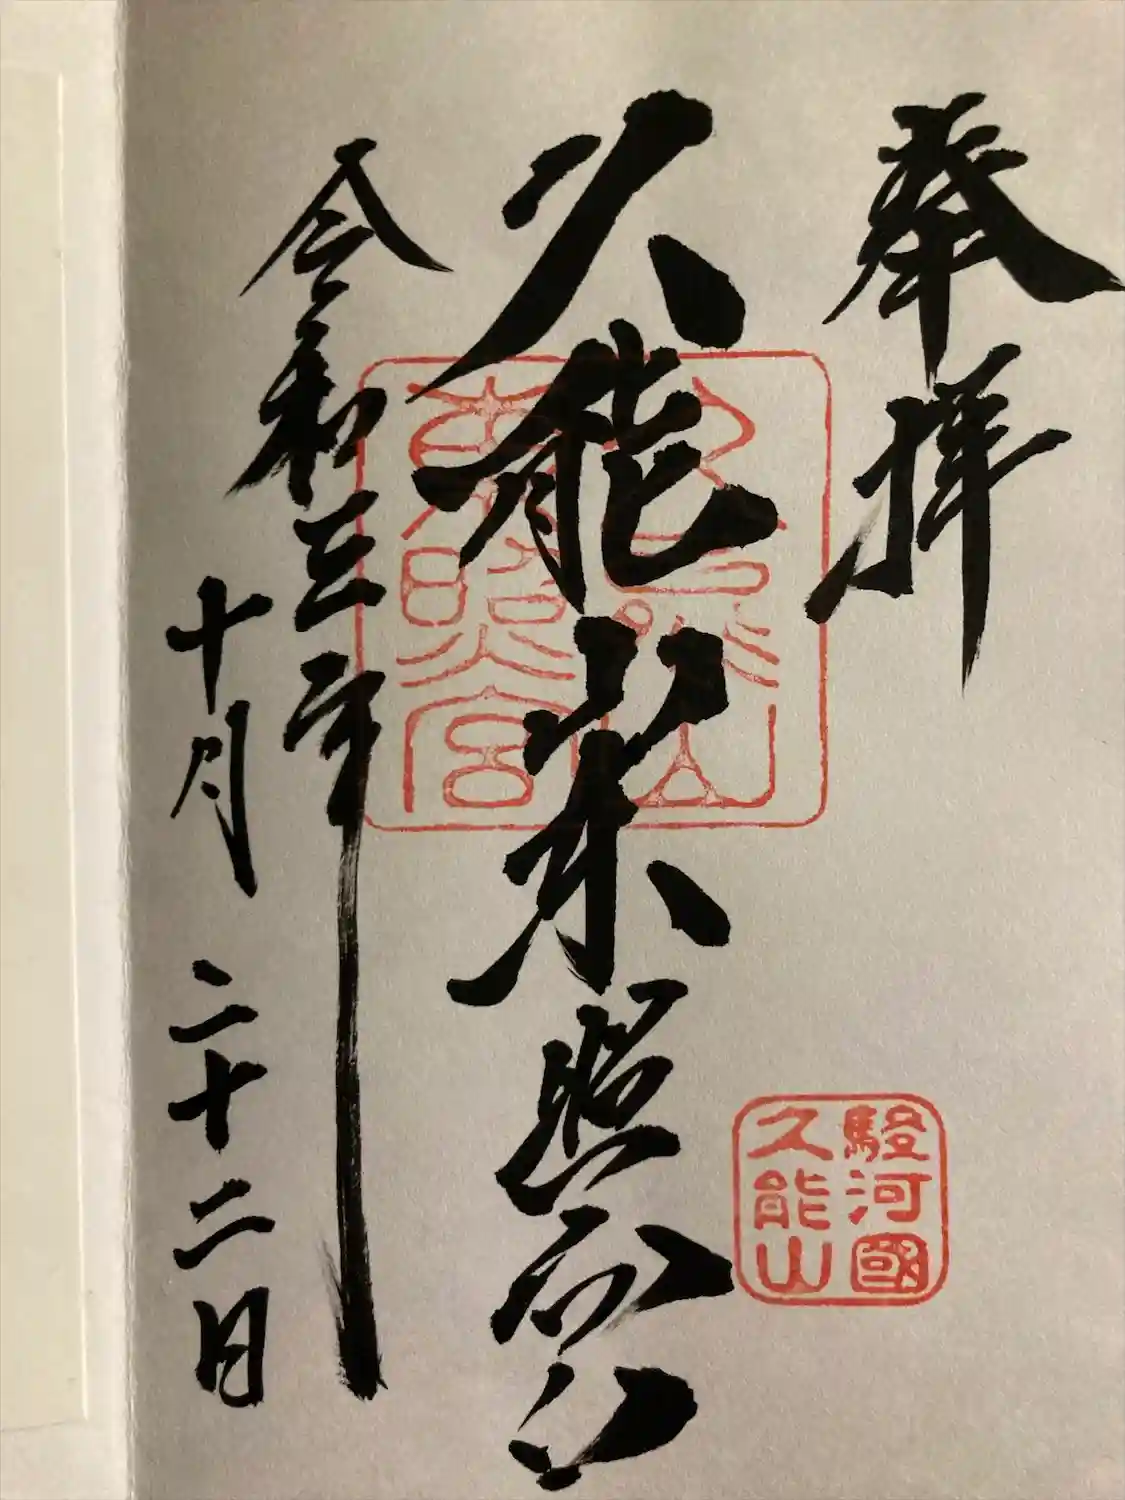 奉拝
久能山
東照宮
駿河國
久能山
久能山東照宮
令和三年
十月二十二日